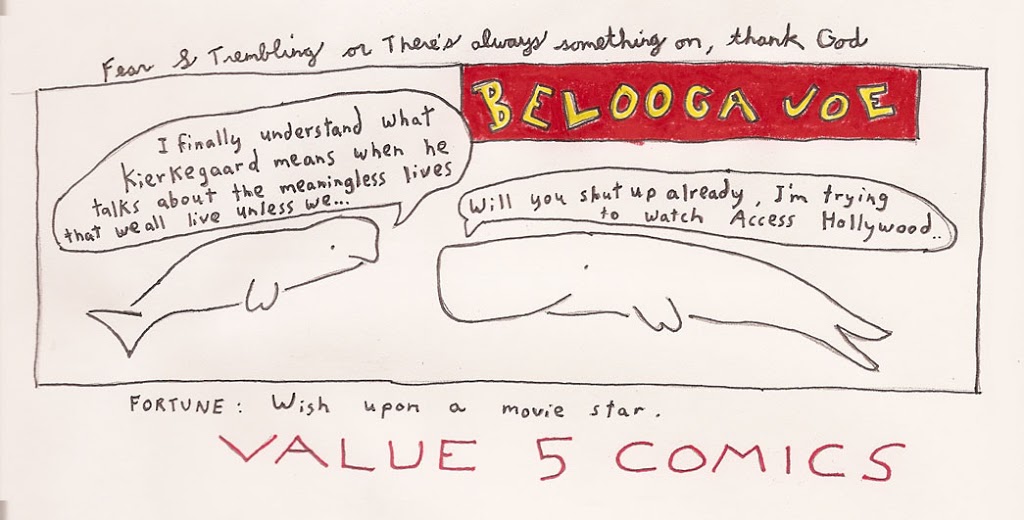 Fear & Trembling or There's always something on, thank God
BELOOGA JOE
I finally understand what
Kierkegaard means when he
talks about the meaningless lives
that we all live unless we...
Will you shut up already, I'm trying
to watch Access Hollywood..
FORTUNE: Wish upon a movie star.
VALUE 5 COMICS